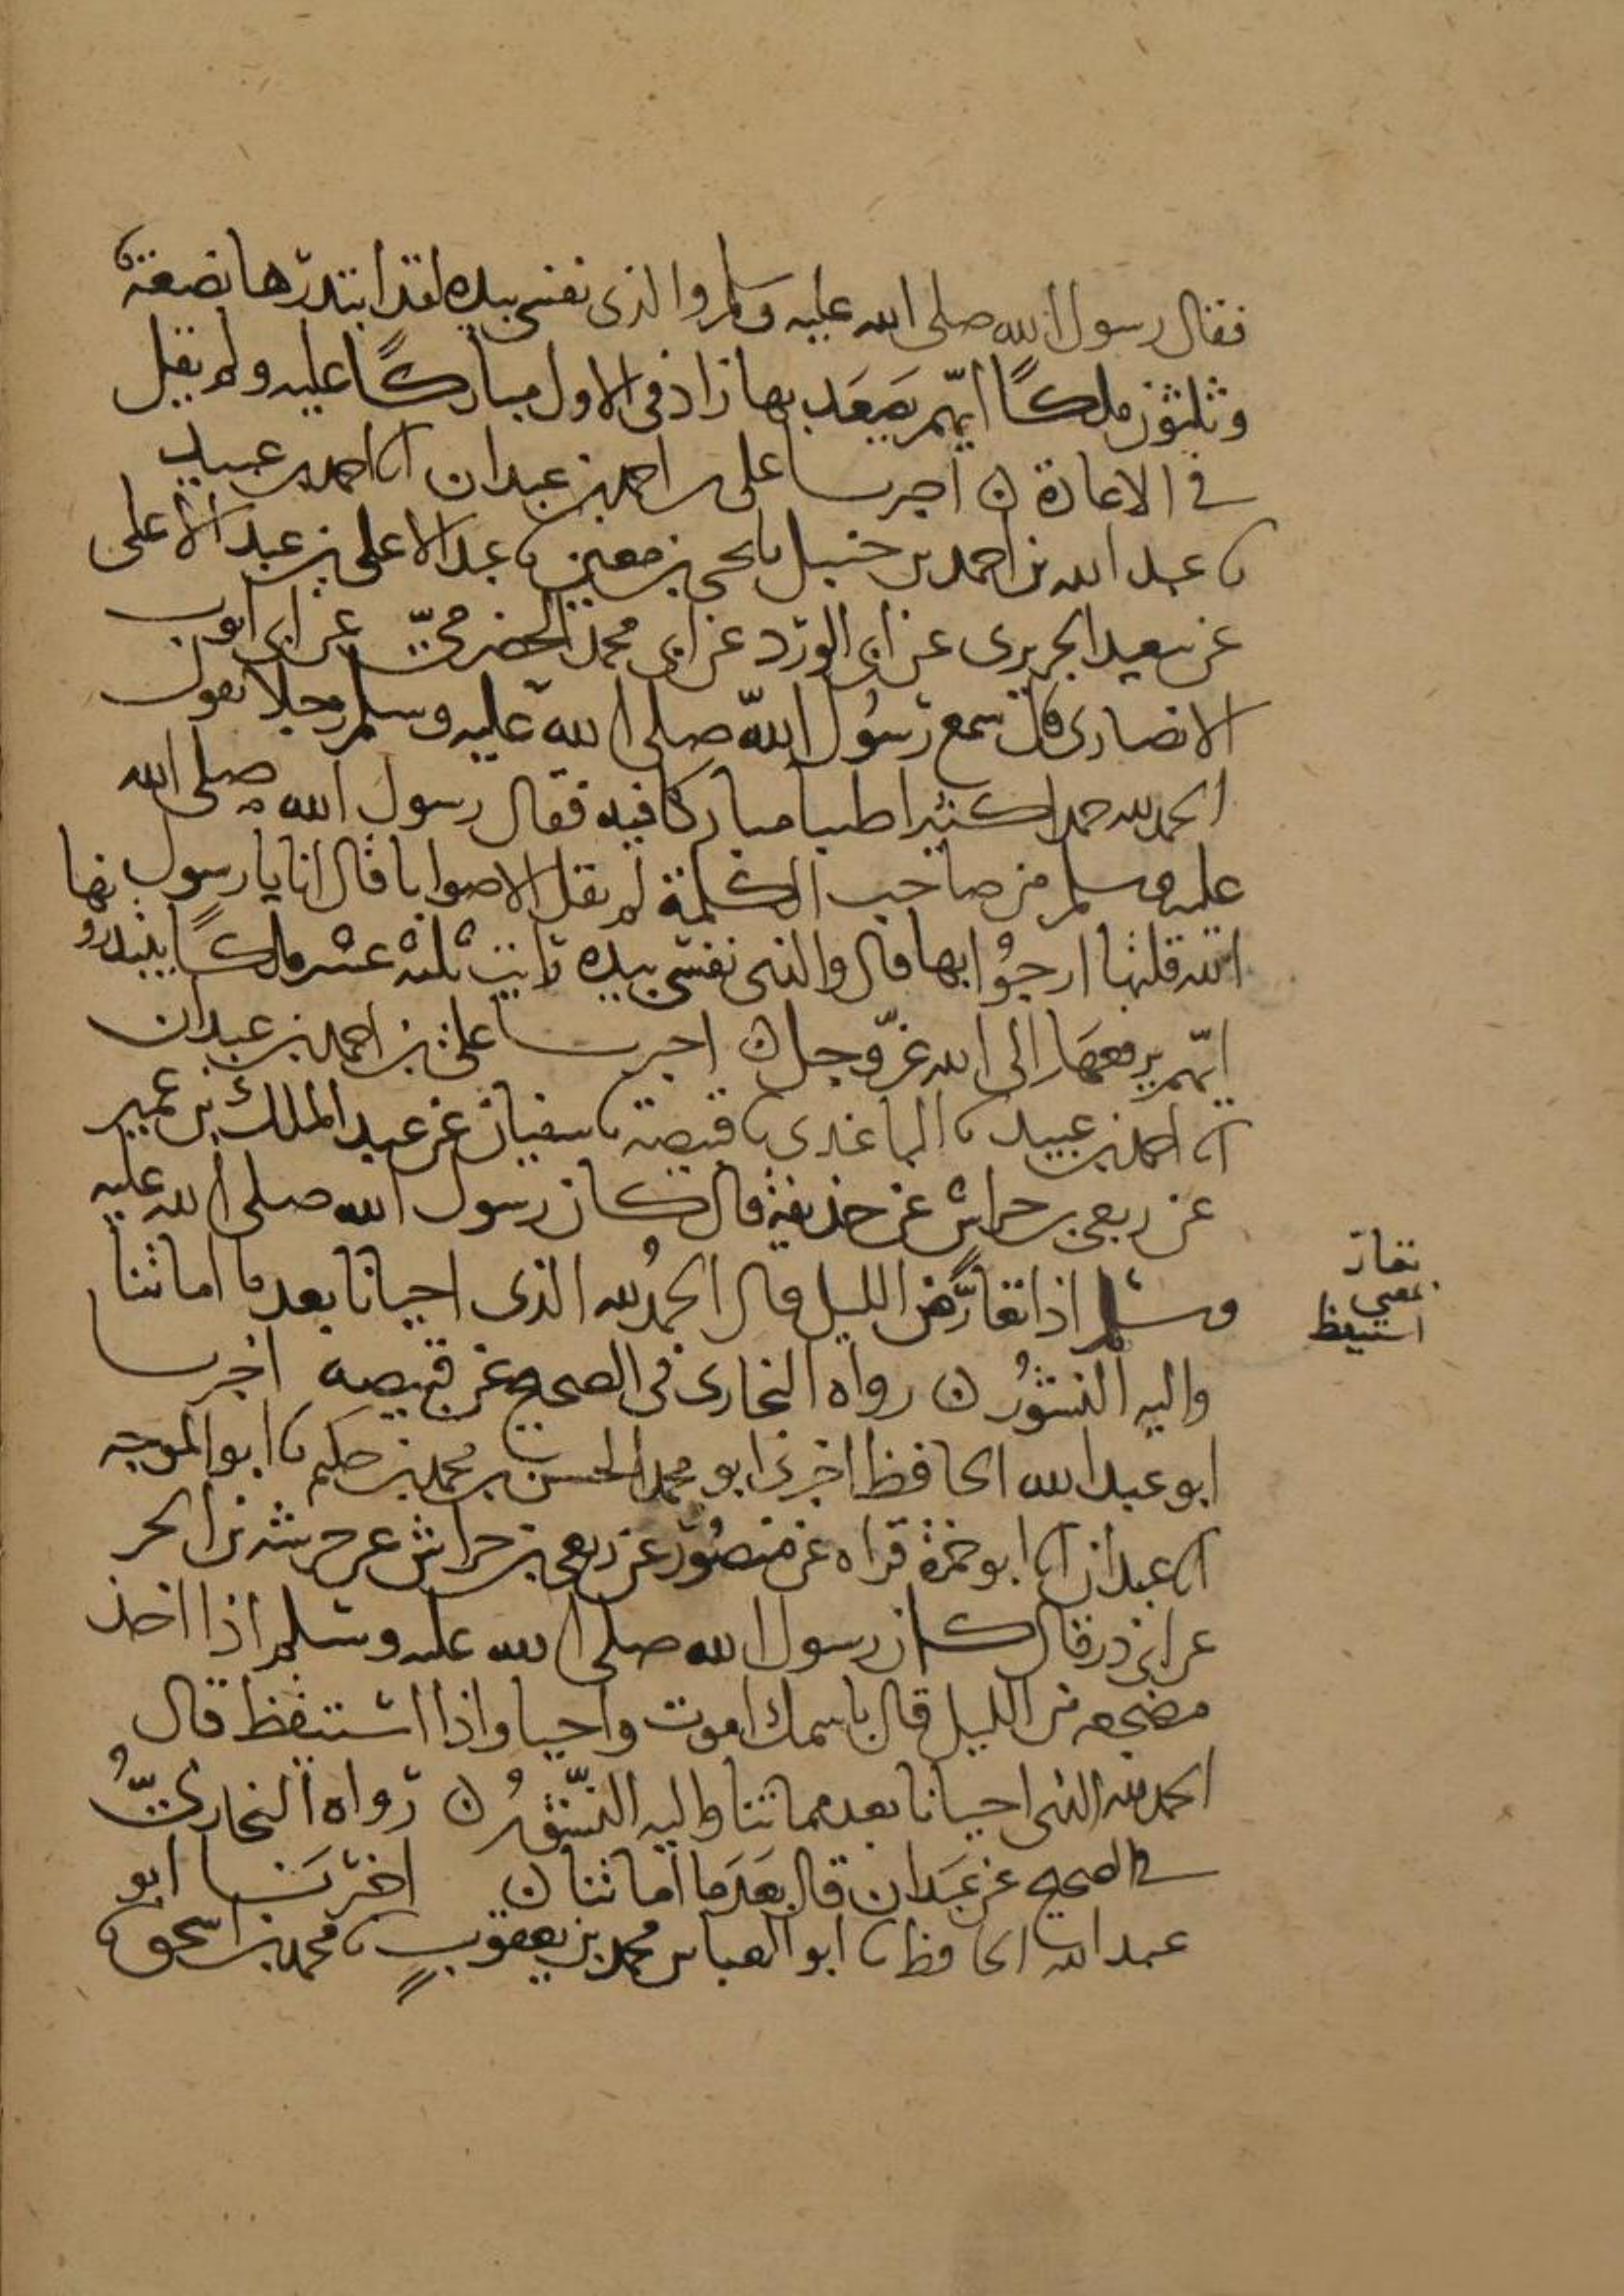 فقال رسول الله صلى الله عليه وسلم والذى نفسى بيده لقد ابتدرها بضعة
وثلثون ملكًا ايّهم يَصعَد بها زاد فى الاول مباركًا عليه ولم يقل
فى الاعادة ن اخبرنا على بن احمد بن عبدان انا احمد بن عبيد
نا عبد الله بن احمد بن حنبل نا يحيى بن معين نا عبد الاعلى بن عبد الاعلى
عن سعيد الجريرى عن ابى الورد عن ابى محمد الحضرمىّ عن ابى ايوب
الانصارى قال سمع رسُول الله صلى الله عليه وسلم رجلا يقول
الحمد لله حمدا كثيرا طيبا مباركا فيه فقال رسول الله صلى الله
عليه وسلم من صاحب الكلمة لم يقل الا صوابا قال انا يا رسول
الله قلتها ارجُوا بها قال والذى نفسى بيده رايت ثلثة عشر ملكًا يبتدرونها
ايّهم يرفعهَا الى الله عزّ وجل ن اخبرنا على بن احمد بن عبدان
انا احمد بن عبيد نا الباغندى نا قبيصة نا سفيان عن عبد الملك بن عمير
عن ربعى بن حراش عن حذيفة قال كان رسول الله صلى الله عليه
وسلم اذا تعارَّ من الليل قال الحمدُ لله الذى احيانا بعد ما اماتنا
تعارّ
بمعنى
استيقظ
واليه النشُور ن رواه البخارى فى الصحيح عن قبيصه اخبرنا
ابو عبد الله الحافظ اخبرنى ابو محمد الحسن بن محمد بن حليم نا ابو الموجه
انا عبدان انا ابو حمزة قراه عن منصُور عن ربعى بن حراش عن خرشة بن الحر
عن ابى ذر قال كان رسول الله صلى الله عليه وسلم اذا اخذ
مضجعه من الليل قال باسمك اموت واحيا واذا استيقظ قال
الحمد لله الذى احيانا بعد مماتنا واليه النّشُور ن رواه البخارىّ
فى الصحيح عن عَبدان قال بَعدَ ما اماتنا ن اخبرَنا ابو
عبد الله الحافظ نا ابو العباس محمد بن يعقوب نا محمد بن اسحق